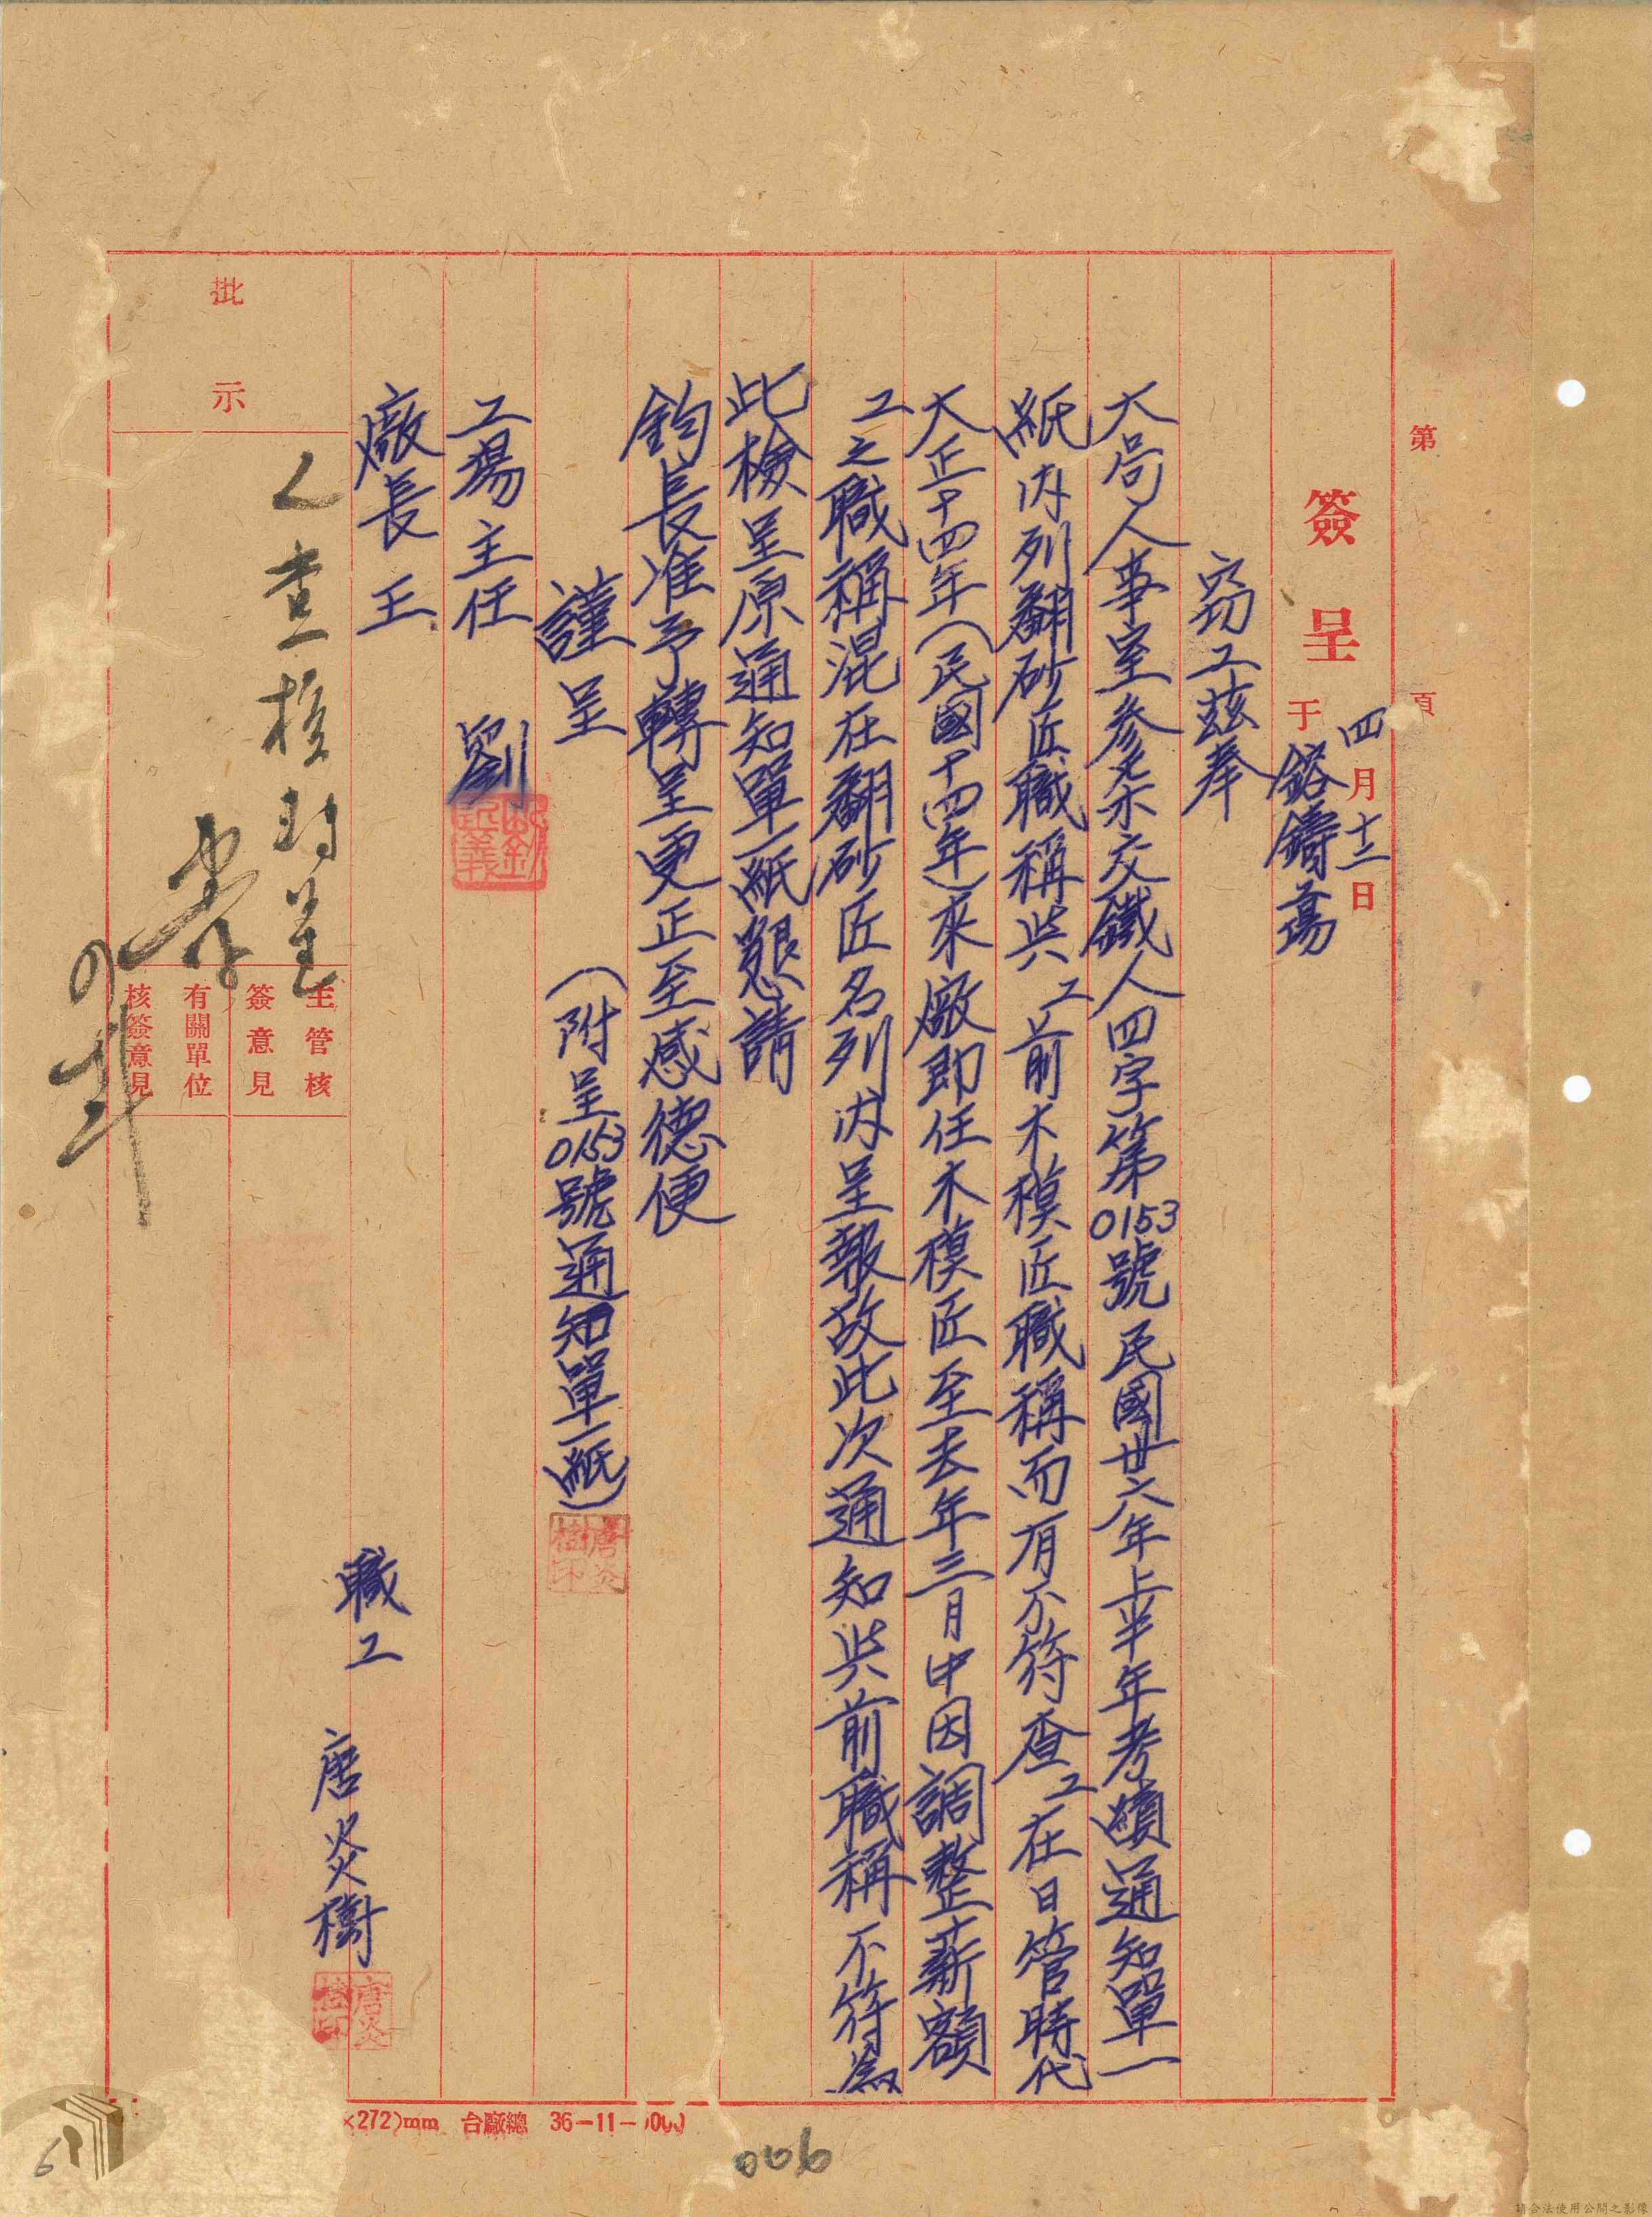 第 頁
簽呈 四月十二日
于 鎔鑄場
竊工茲奉
大局人事室參柒交鐵人四字第0153號民國卅六年上半年考績通知單一
紙內列翻砂匠職稱與工前木模匠職稱而有不符查工在日管時代
大正十四年(民國十四年)來廠即任木模匠至去年三月中因調整薪額
工之職稱混在翻砂匠名列內呈報故此次通知與前職稱不符為
此檢呈原通知單一紙懇請
鈞長准予轉呈更正至感德便
謹呈 (附呈0153號通知單一紙)
唐炎樹印
工場主任 劉
廠長 王
職工 唐炎樹
唐炎樹印
批示
查核
主管核簽意見
有關單位核簽意見
×272)mm 台廠總 36-11-
006
6
請合法使用公開之影像